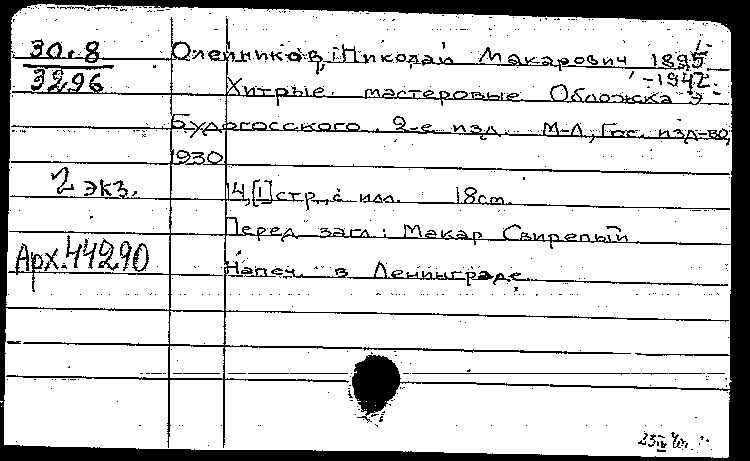 30.8
3296
Олейников, Николай Макарович 1895
-1942.
Хитрые мастеровые Обложка Э.
Будогосского. 2-е изд. М-Л., Гос. изд-во,
1930
2 экз.
14,[1] стр., с илл. 18 cm.
Перед загл.: Макар Свирепый
Арх. 44290
Напеч. в Ленинграде.